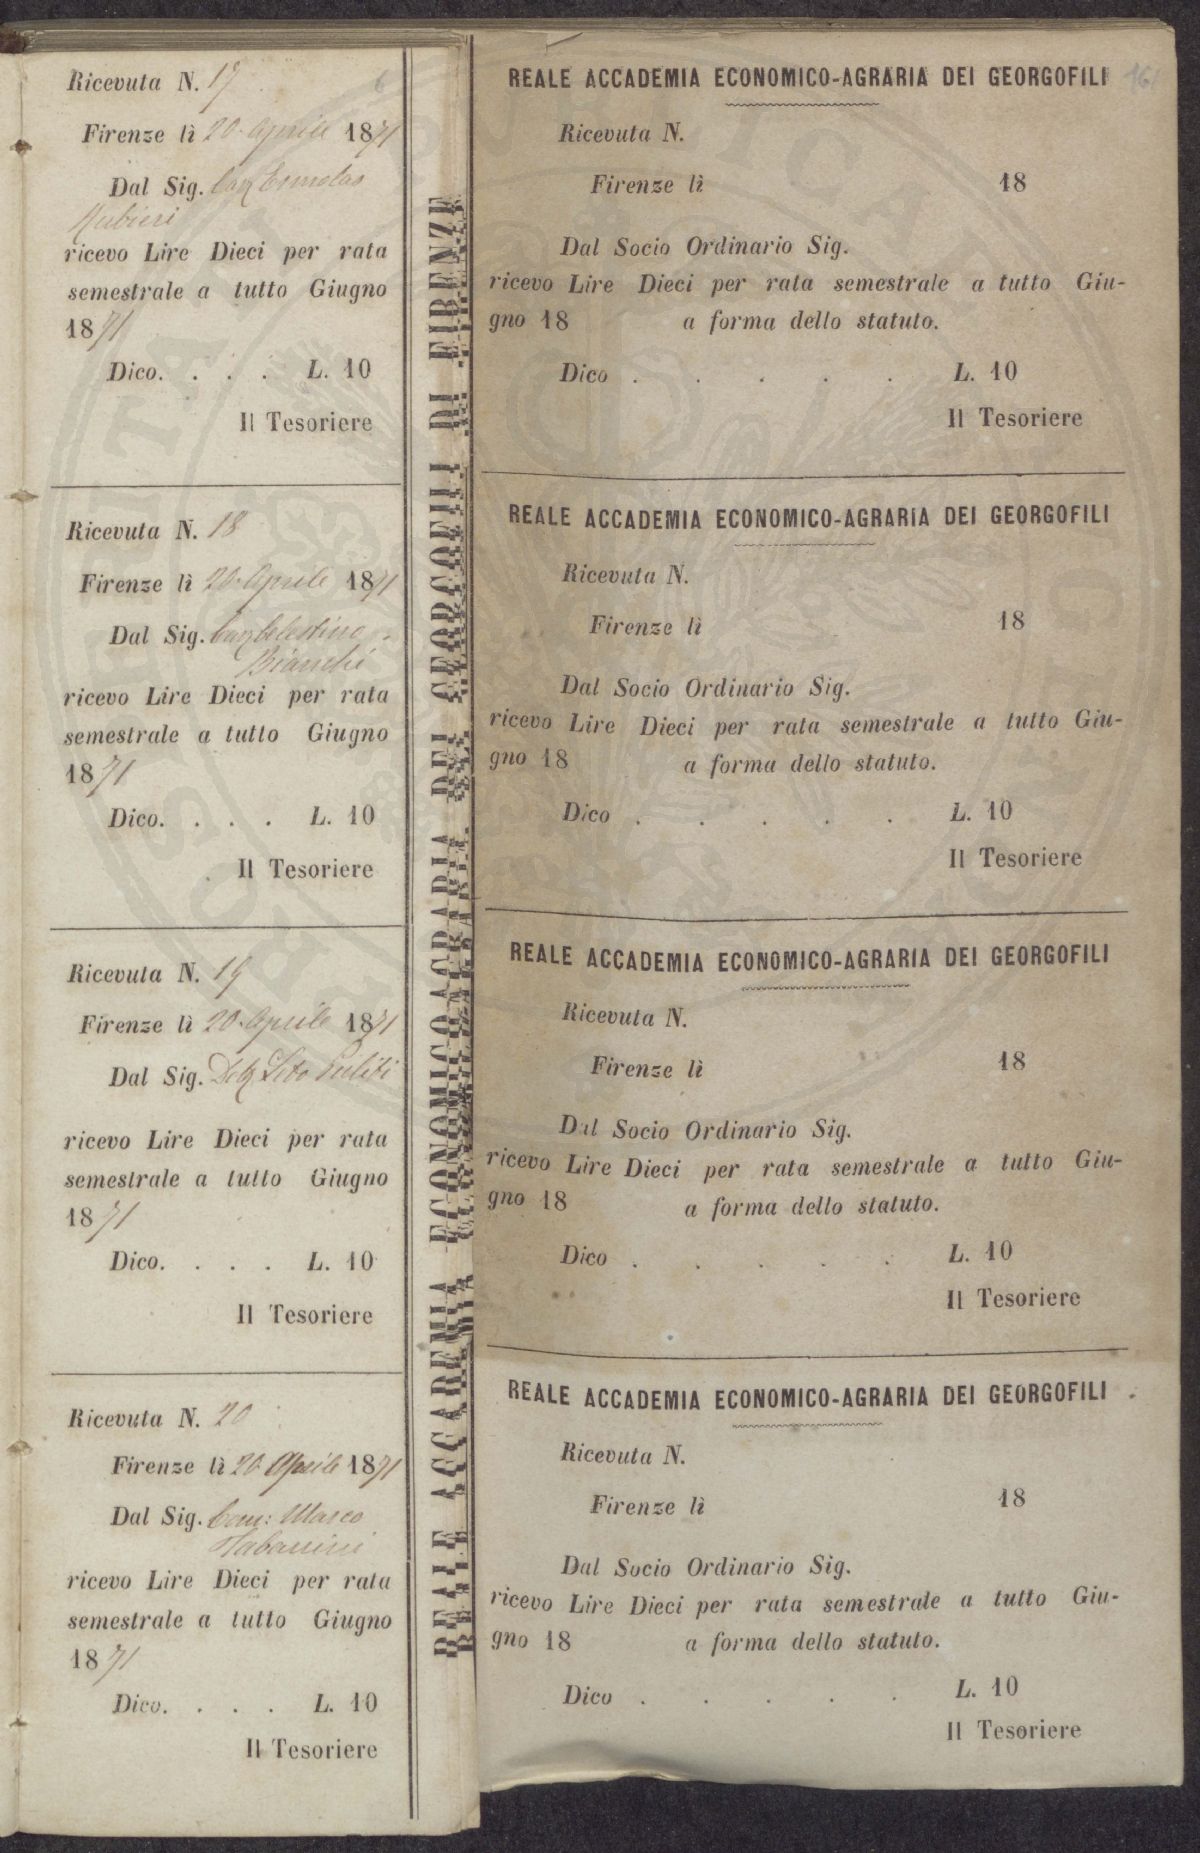 Ricevuta N. 17
Firenze lì 20. Aprile 1871
Dal Sig. Cav Ermolao
Rubieri
ricevo Lire Dieci per rata
semestrale a tutto Giugno
1871
Dico. . . . L. 10
Il Tesoriere
Ricevuta N. 18
Firenze lì 20. Aprile 1871
Dal Sig. Cav Celestino
Bianchi
ricevo Lire Dieci per rata
semestrale a tutto Giugno
1871
Dico. . . . L. 10
Il Tesoriere
Ricevuta N. 19
Firenze lì 20. Aprile 1871
Dal Sig. Leto Puliti
ricevo Lire Dieci per rata
semestrale a tutto Giugno
1871
Dico. . . . L. 10
Il Tesoriere
Ricevuta N. 20
Firenze lì 20 Aprile 1871
Dal Sig. Com: Marco
Tabarrini
ricevo Lire Dieci per rata
semestrale a tutto Giugno
1871
Dico. . . . L. 10
Il Tesoriere
REALE ACCADEMIA ECONOMICO AGRARIA DEI GEORGOFILI DI FIRENZE
REALE ACCADEMIA ECONOMICO-AGRARIA DEI GEORGOFILI
Ricevuta N.
Firenze lì 18
Dal Socio Ordinario Sig.
ricevo Lire Dieci per rata semestrale a tutto Giu-
gno 18 a forma dello statuto.
Dico . . . . . L. 10
Il Tesoriere
REALE ACCADEMIA ECONOMICO-AGRARIA DEI GEORGOFILI
Ricevuta N.
Firenze lì 18
Dal Socio Ordinario Sig.
ricevo Lire Dieci per rata semestrale a tutto Giu-
gno 18 a forma dello statuto.
Dico . . . . . L. 10
Il Tesoriere
REALE ACCADEMIA ECONOMICO-AGRARIA DEI GEORGOFILI
Ricevuta N.
Firenze lì 18
Dal Socio Ordinario Sig.
ricevo Lire Dieci per rata semestrale a tutto Giu-
gno 18 a forma dello statuto.
Dico . . . . . L. 10
Il Tesoriere
REALE ACCADEMIA ECONOMICO-AGRARIA DEI GEORGOFILI
Ricevuta N.
Firenze lì 18
Dal Socio Ordinario Sig.
ricevo Lire Dieci per rata semestrale a tutto Giu-
gno 18 a forma dello statuto.
Dico . . . . . L. 10
Il Tesoriere